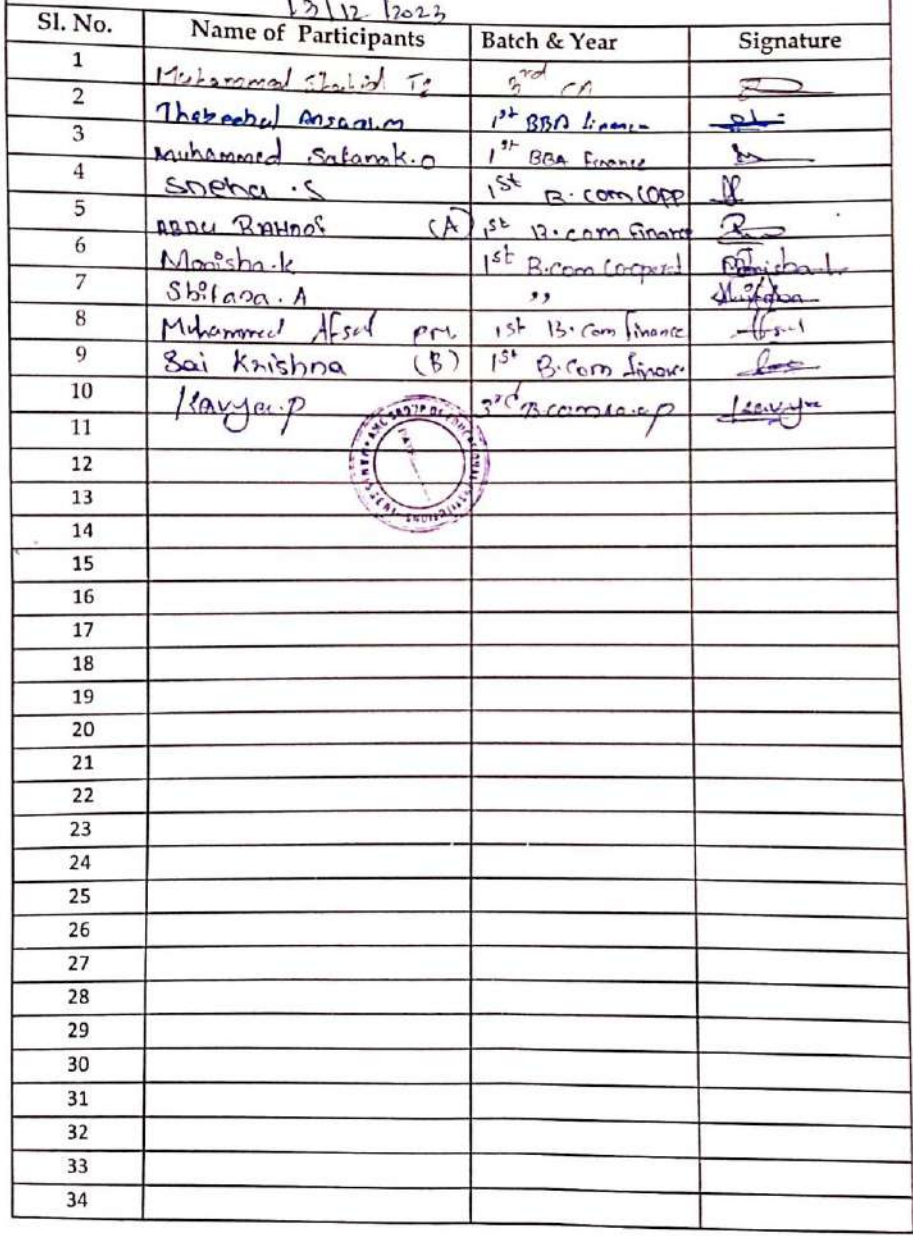 13/12/2023
Sl. No. Name of Participants Batch & Year Signature
1 Muhammad Shahid 3rd CA
2 Thabeebul Ansari.m 1st BBA finance
3 Muhammed Safanak.o 1st BBA Finance
4 Sneha.S 1st B.com COPP
5 ABDU RAHNOF (A) 1st B.com Finance
6 Monisha.k 1st B.Com Cooperat Monisha.k
7 Shifana.A ,, Shifana
8 Muhammed Afsal pm. 1st B.Com finance Afsal
9 Sai Krishna (B) 1st B.Com finance
10 Kavya.p 3rd B.com co.op Kavya
11
12
13
14
15
16
17
18
19
20
21
22
23
24
25
26
27
28
29
30
31
32
33
34